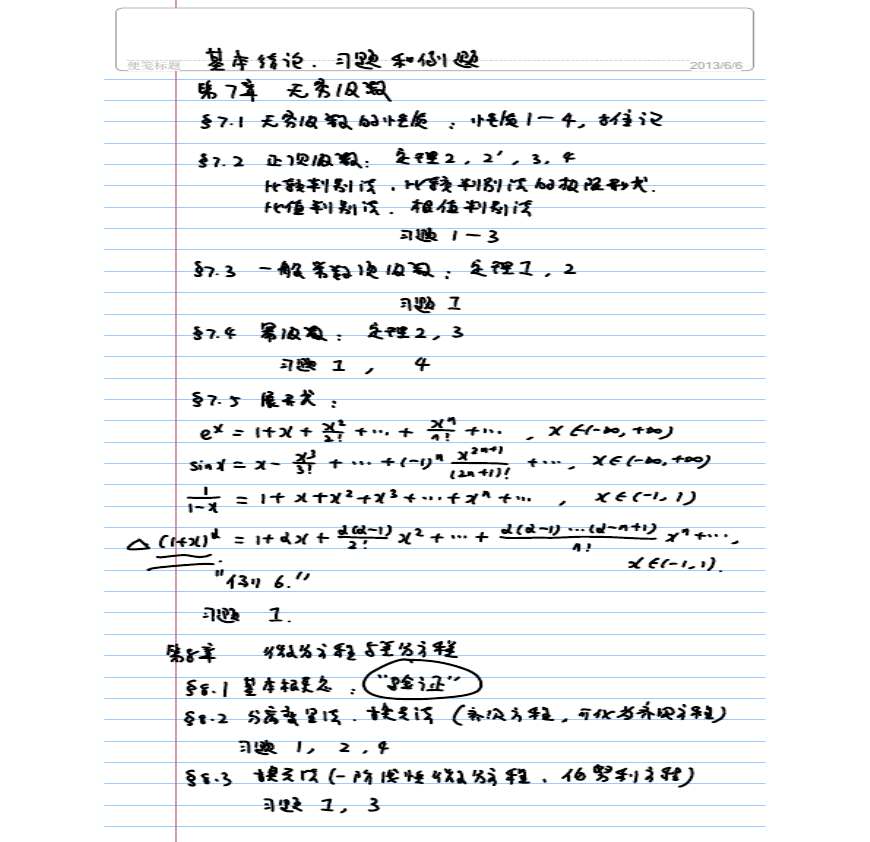 基本结论、习题和例题
便笺标题
2013/6/6
第7章 无穷级数
§7.1 无穷级数的性质：性质1－4，要住记
§7.2 正项级数：定理2，2′，3，4
比较判别法，比较判别法的极限形式.
比值判别法、根值判别法
习题1－3
§7.3 一般常数项级数：定理1，2
习题1
§7.4 幂级数：定理2，3
习题1， 4
§7.5 展开式：
e^x = 1+x+x²/2!+…+x^n/n!+… , x∈(-∞,+∞)
sinx = x-x³/3!+…+(-1)^n x^(2n+1)/(2n+1)!+…, x∈(-∞,+∞)
1/(1-x) = 1+x+x²+x³+…+x^n+… , x∈(-1,1)
△ (1+x)^α = 1+αx+α(α-1)/2! x²+…+α(α-1)…(α-n+1)/n! x^n+…,
x∈(-1,1).
"例6."
习题 1.
第8章 微分方程与差分方程
§8.1 基本概念："验证"
§8.2 分离变量法、换元法（齐次方程，可化为齐次方程）
习题 1，2，4
§8.3 换元法（一阶线性微分方程、伯努利方程）
习题 1，3